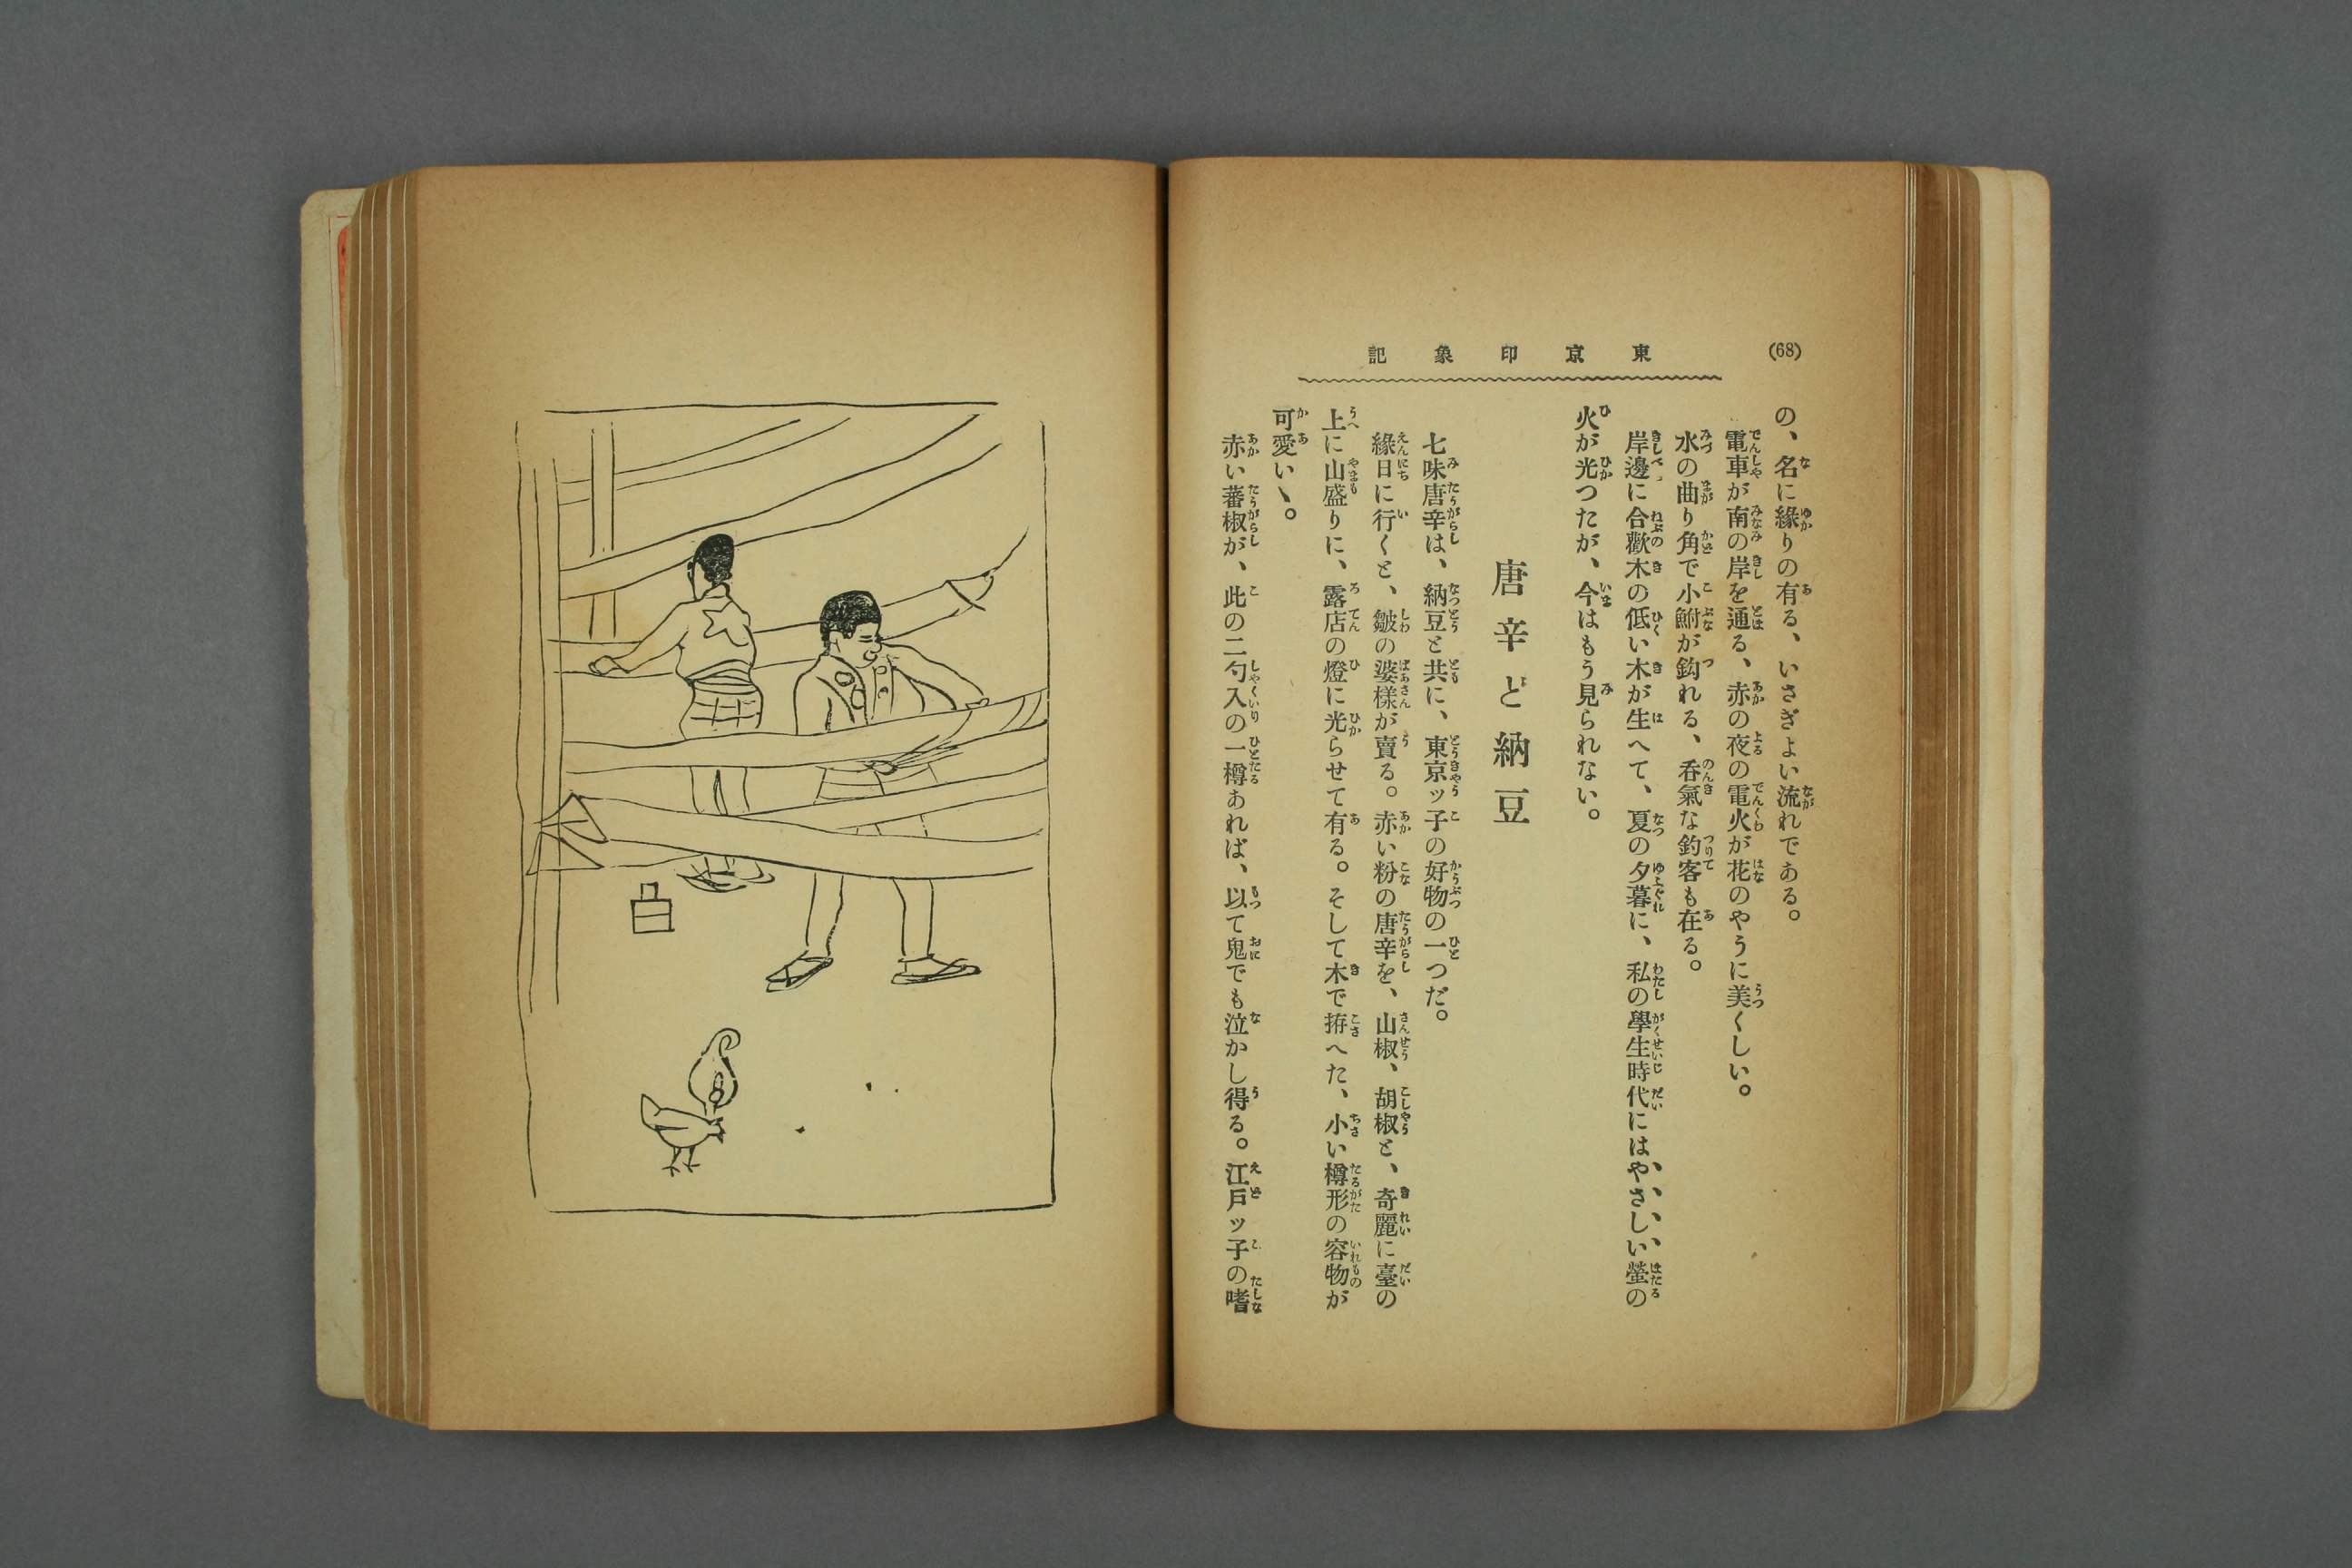 (68)
東京印象記
の、名に緣りの有る、いさぎよい流れである。
電車が南の岸を通る、赤の夜の電火が花のやうに美くしい。
水の曲り角で小鮒が鈎れる、呑氣な釣客も在る。
岸邊に合歡木の低い木が生へて、夏の夕暮に、私の學生時代にはやさしい螢の
火が光つたが、今はもう見られない。
唐辛と納豆
七味唐辛は、納豆と共に、東京ッ子の好物の一つだ。
緣日に行くと、皺の婆樣が賣る。赤い粉の唐辛を、山椒、胡椒と、奇麗に臺の
上に山盛りに、露店の燈に光らせて有る。そして木で拵へた、小い樽形の容物が
可愛いゝ。
赤い蕃椒が、此の二勺入の一樽あれば、以て鬼でも泣かし得る。江戸ッ子の嗜